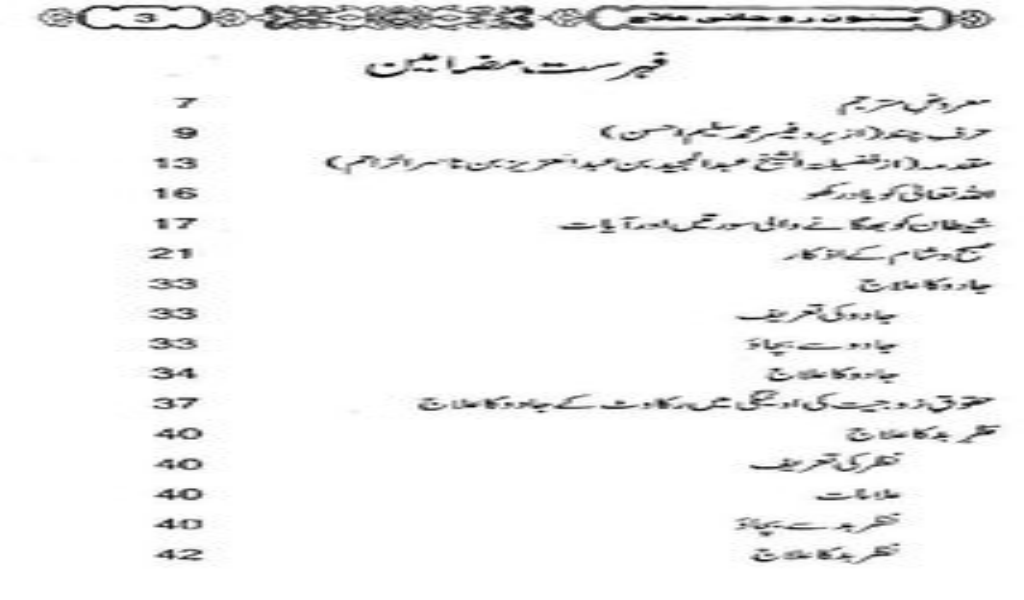 مسنون روحانی علاج 3
فہرست مضامین
معروض مترجم 7
حرف چند (از پروفیسر محمد سلیم احسن) 9
مقدمہ (از فضیلۃ الشیخ عبدالمجید بن عبدالعزیز بن ناصر الزاحم) 13
اللہ تعالیٰ کو یاد رکھو 16
شیطان کو بھگانے والی سورتیں اور آیات 17
صبح و شام کے اذکار 21
جادو کا علاج 33
جادو کی تعریف 33
جادو سے بچاؤ 33
جادو کا علاج 34
حقوق زوجیت کی ادائیگی میں رکاوٹ کے جادو کا علاج 37
نظر بد کا علاج 40
نظر کی تعریف 40
علامات 40
نظر بد سے بچاؤ 40
نظر بد کا علاج 42